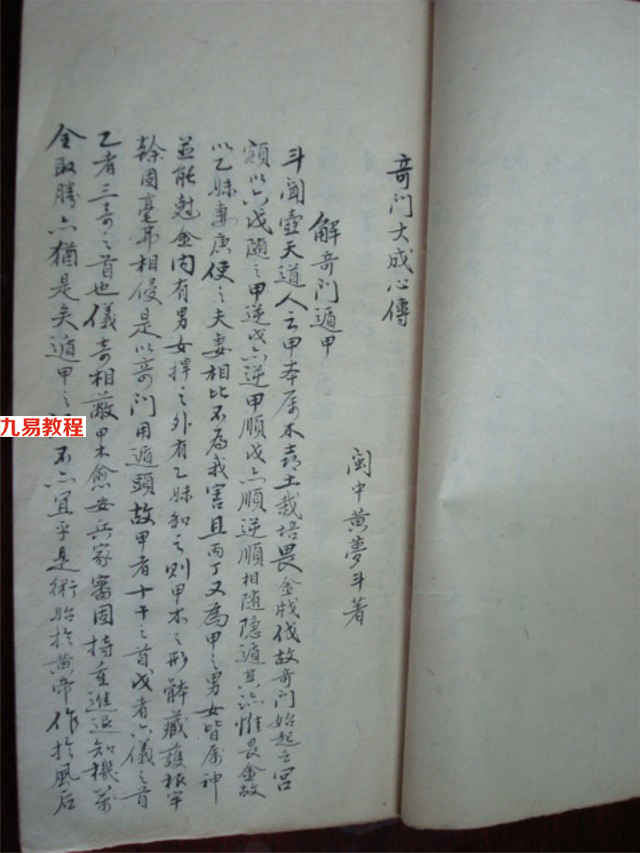 奇门大成心傳
閩中黄夢斗著
解奇门遁甲
斗聞壺天道人云甲本属木喜土栽培畏金戕伐故奇门始起之宮
額以六戊随之甲逆戊亦逆甲順戊亦順逆順相随隐遁其踪惟畏金故
以乙妹妻庚使之夫妻相比不為我害且丙丁又為甲之男女皆属神
並能尅金内有男女捍之外有乙妹和之則甲木之形躰藏護根牢
幹固毫弗相侵是以奇门用遁頭故甲者十干之首戊者六儀之首
乙者三奇之首也儀奇相蔽甲木愈安兵家審固持重進退知機萬
全取勝亦猶是矣遁甲之不亦宜乎是術始於黄帝作於風后
九易教程